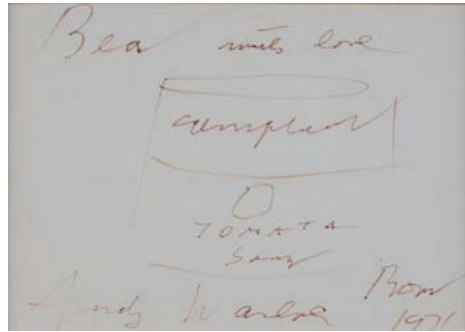 Bea with love
Campbell
TOMATA
Soup
Andy Warhol Rom
1971